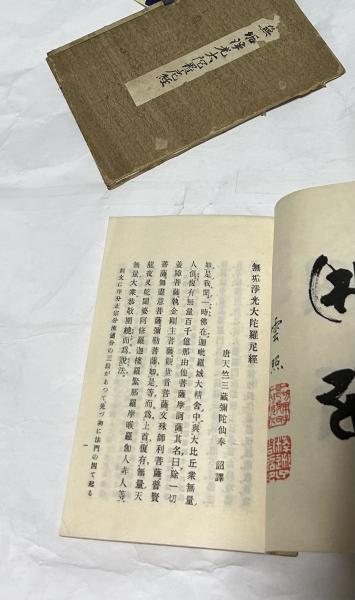 無垢浄光大陀羅尼経
雲照
無垢淨光大陀羅尼經
唐天竺三藏彌陀仙奉 詔譯
如是我聞一時佛在迦毗羅城大精舍中與大比丘衆無量
人俱復有無量百千億那由他菩薩摩訶薩其名曰除一切
蓋障菩薩執金剛主菩薩觀世音菩薩文殊師利菩薩普賢
菩薩無盡意菩薩彌勒菩薩如是等而爲上首復有無量天
龍夜叉乾闥婆阿修羅迦樓羅緊那羅摩睺羅伽人非人等
無量大衆恭敬圍繞而爲說法
經文に序分正宗分流通分の三段があつて先づ初に法門の因て起る
一